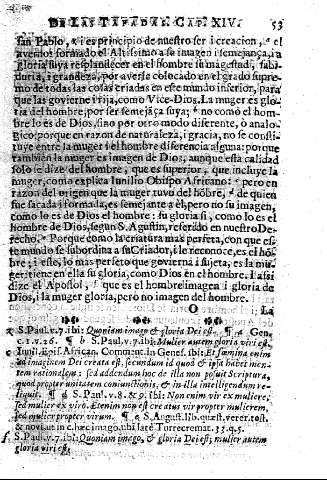 DE LAS TAPADAS. CAP. XIV. 53
san Pablo, i es principio de nuestro ser i creacion, el
avernos formado el Altissimo a su imagen i semejança, i a
gloria suya resplandecer en el hombre su magestad, sabi-
duria, i grandeza, por averse colocado en el grado supre-
mo de todas las cosas criadas en este mundo inferior, para
que las govierne i rija, como Vice-Dios. La muger es glo-
ria del hombre, por ser semejãça suya; no como el hom-
bre lo es de Dios, sino por otro modo diferente, o analo-
gico; porque en razon de naturaleza, i gracia, no se consti-
tuye entre la muger i el hombre diferencia alguna: porque
tambien la muger es imagen de Dios, aunque esta calidad
solo se dize del hombre, que es superior, que incluye la
muger, como explica Iunilio Obispo Africano: pero en
razon del origen que la muger tuvo del hõbre, de quien
fue sacada i formada, es semejante a èl, pero no su imagen,
como lo es de Dios el hombre: su gloria si, como lo es el
hombre de Dios, segun S. Agustin, referido en nuestro De-
recho. Porque como la criatura mas perfeta, con que es-
te mundo se subordina a su Criador, i le reconoce, es el hõ-
bre, i este, lo mas perfeto que govierna i sujeta, es la mu-
ger; tiene en ella su gloria, como Dios en el hombre. I assi
dize el Apostol, que es el hombre imagen i gloria de
Dios, i la muger gloria, pero no imagen del hombre.
O La
S. Paul. v. 7. ibi: Quoniam imago & gloria Dei est. ¶ a Gen.
c. 1. v. 26. ¶ b S. Paul. v. 7. ibi: Mulier autem gloria viri est.
c Iunil. Epis. African. Comment. in Genes. ibi: Et fœmina enim
ad imaginem Dei creata est, secundum id quod & ipsa habet men-
tem rationalem: sed addendum hoc de illa non posuit Scriptura,
quod propter unitatem coniunctionis, & in illa intelligendum re-
liquit. ¶ d S. Paul. v. 8. & 9. ibi: Non enim vir ex muliere,
sed mulier ex viro. Etenim non est creatus vir propter mulierem,
sed mulier propter virum. ¶ e S. August. lib. quæst. veter. test.
& novi, aut in c. hæc imago, ubi latè Torrecremat. 33. q. 5.
f S. Paul. v. 7. ibi: Quoniam imago, & gloria Dei est; mulier autem
gloria viri est.